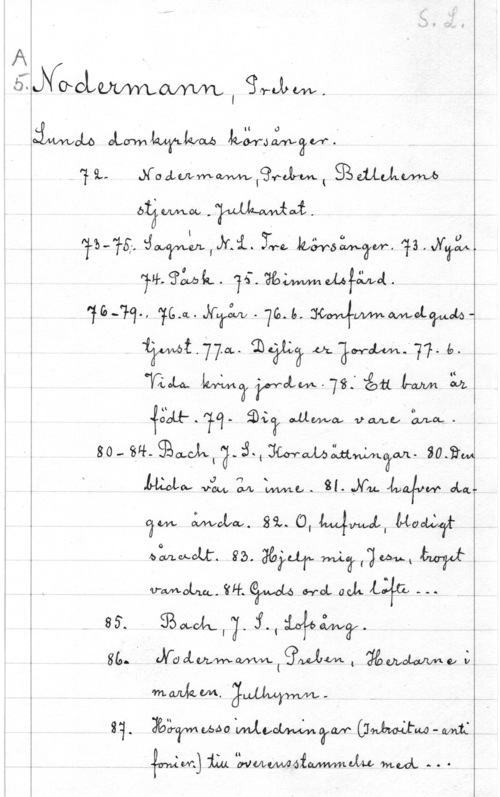 S. L.
A
5. Nodermann, Preben.
Lunds domkyrkas körsånger.
72. Nodermann, Preben, Betlehems
stjerna. Julkantat.
73-75. Sagnér, N. L. Tre körsånger. 73. Nyår.
74. Påsk. 75. Himmelsfärd.
76-79., 76.a. Nyår. 76.b. Konfirmandguds-
tjenst. 77.a. Dejlig er Jorden. 77.b.
Vida kring jorden. 78. Ett barn är
födt. 79. Dig allena vare ära.
80-84. Bach, J. S., Koralsättningar. 80. Den
blida vår är inne. 81. Nu hafver da-
gen ända. 82. O, hufvud, blodigt
såradt. 83. Hjelp mig, Jesu, troget
vandra. 84. Guds ord och löfte ...
85. Bach, J. S., Lofsång.
86. Nodermann, Preben, Herdarne i
marken. Julhymn.
87. Högmessoinledningar (Introitus-anti
fonier.) till överensstammelse med ...